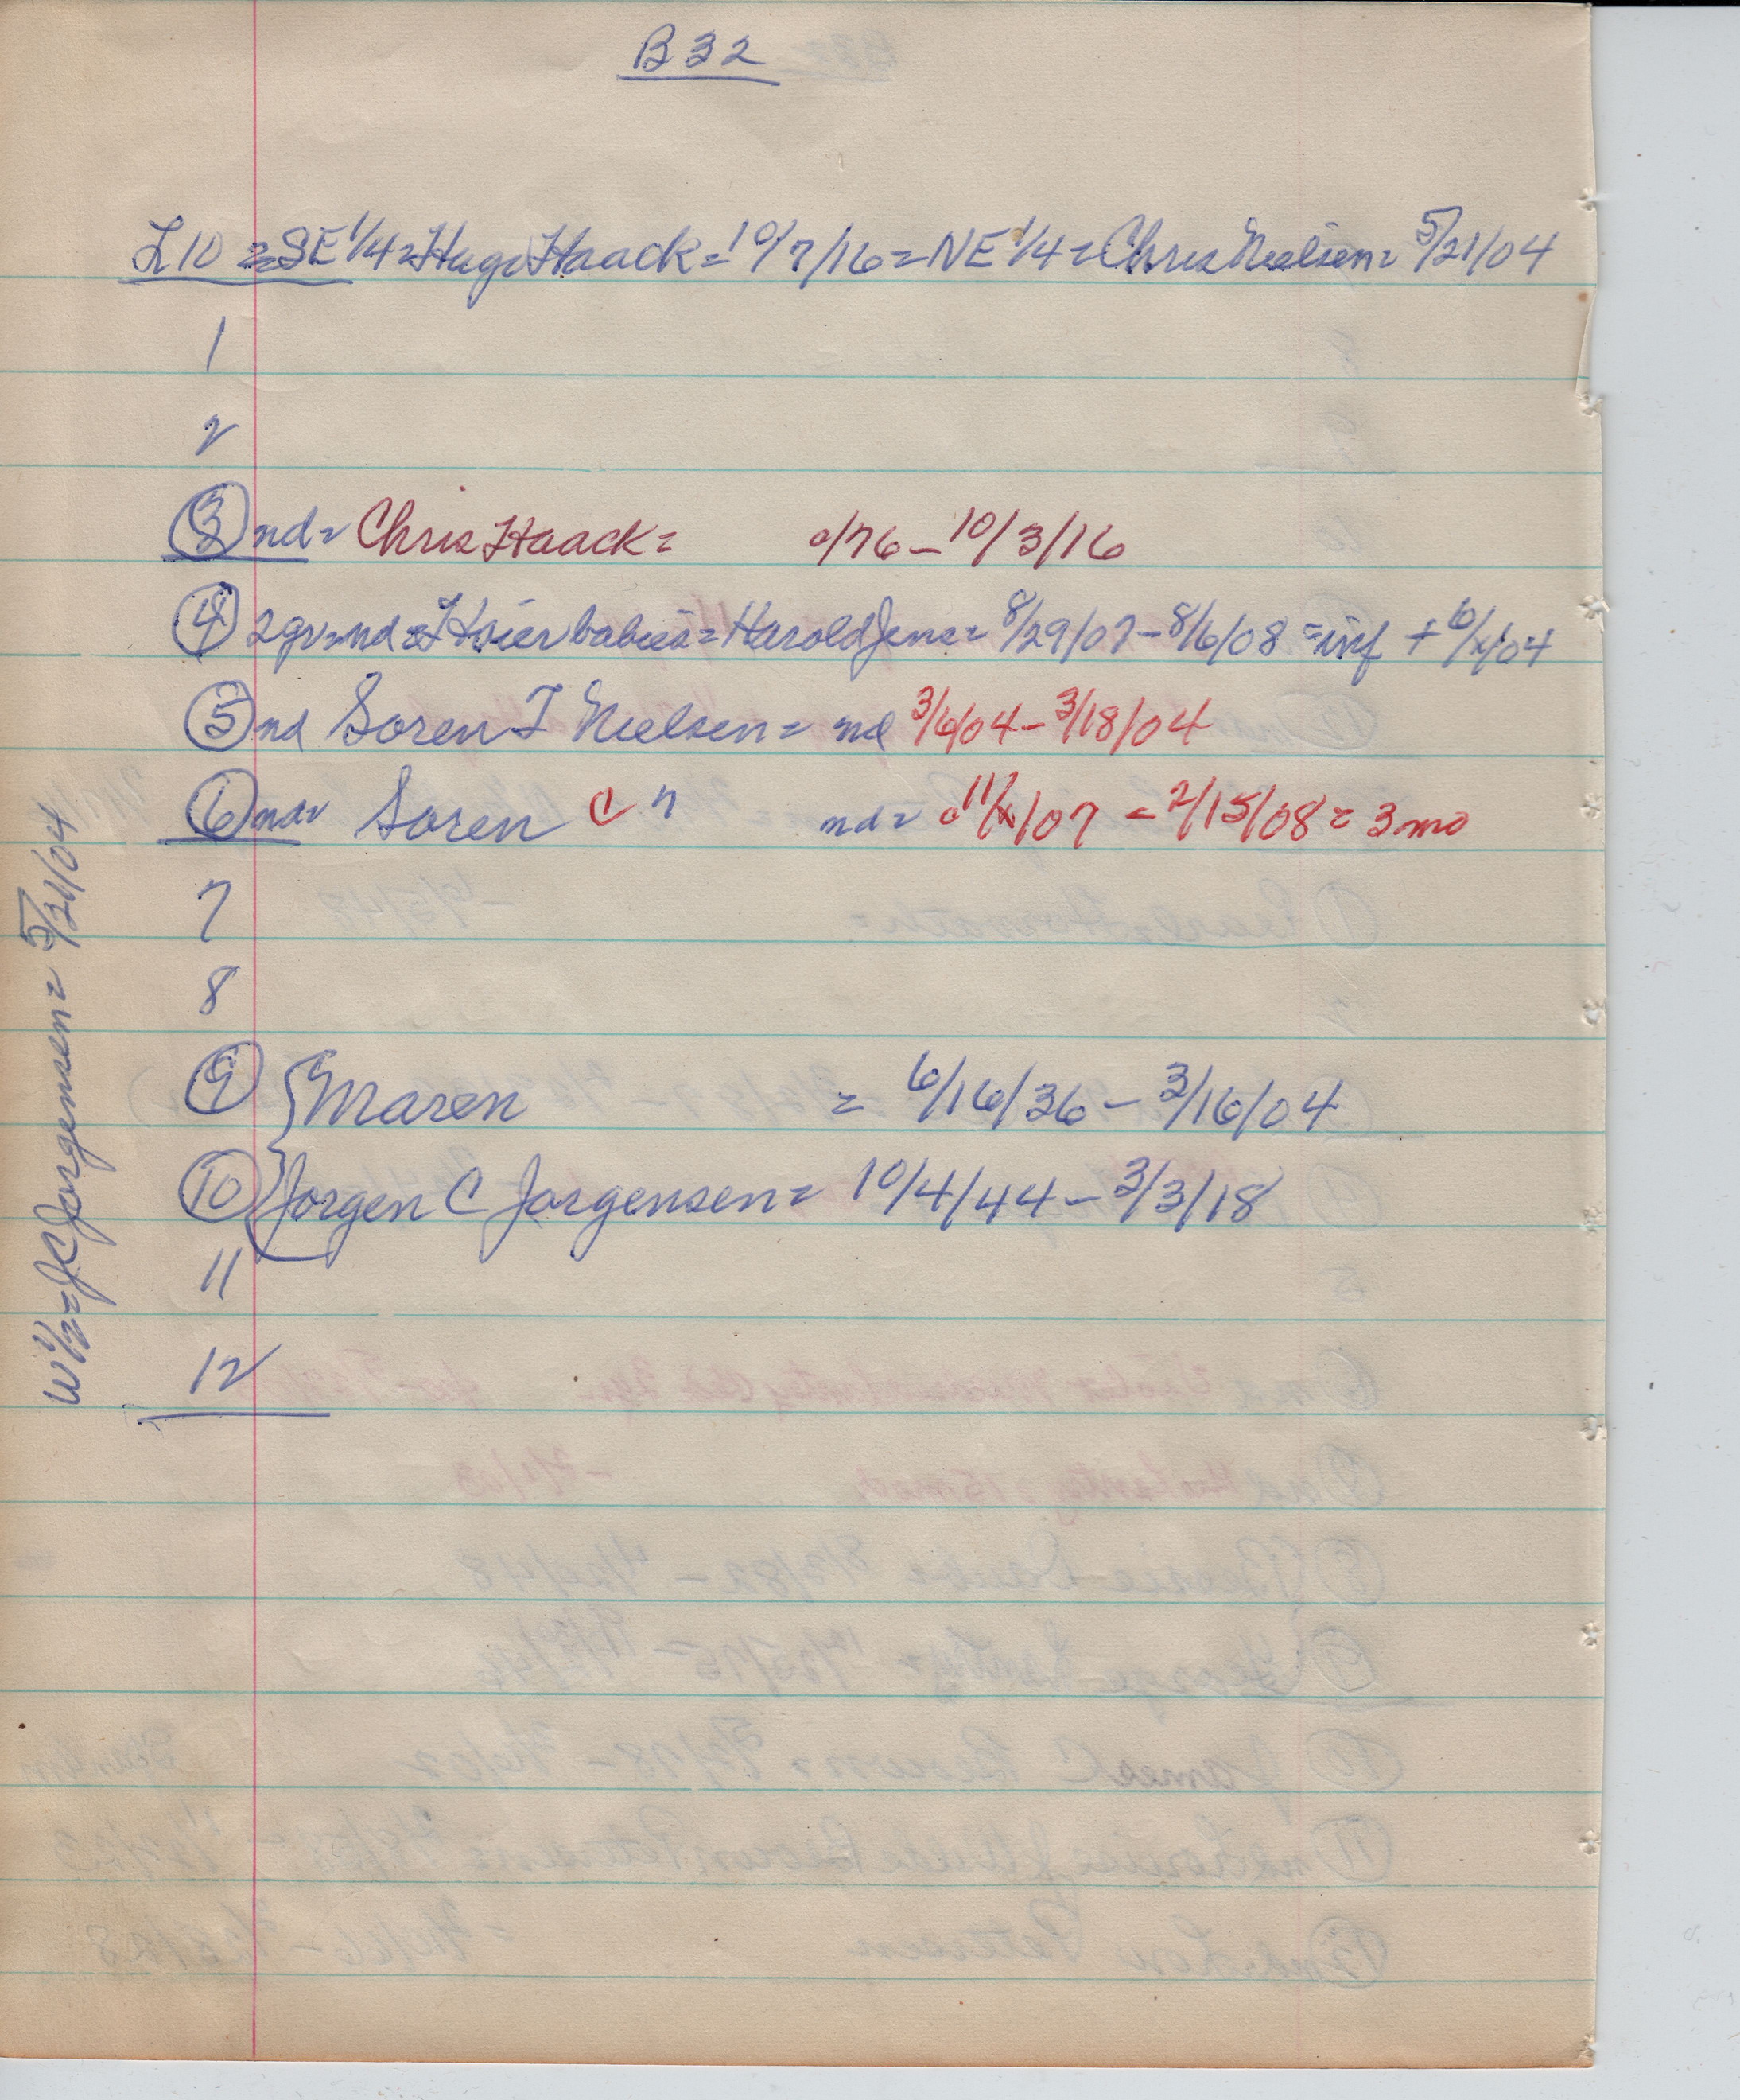 B32
L10 = SE 1/4 = Hago Haack = 10/7/16 = NE 1/4 = Chris Nielsen = 5/21/04
1
2
③ nd = Chris Haack = 0/76 – 10/3/16
④ 2gr = nd = babies = Harold Jens = 8/29/07 – 8/6/08 = inf + 6/x/04
⑤ nd Soren T Nielsen = nd 3/6/04 – 3/18/04
⑥ nd = Soren C " nd = 11/x/07 – 2/15/08 = 3 mo
7
8
⑨ { Maren = 6/16/36 – 3/16/04
⑩ { Jorgen C Jorgensen = 10/4/44 – 3/3/18
11
12
W 1/2 = JC Jorgensen = 5/21/04